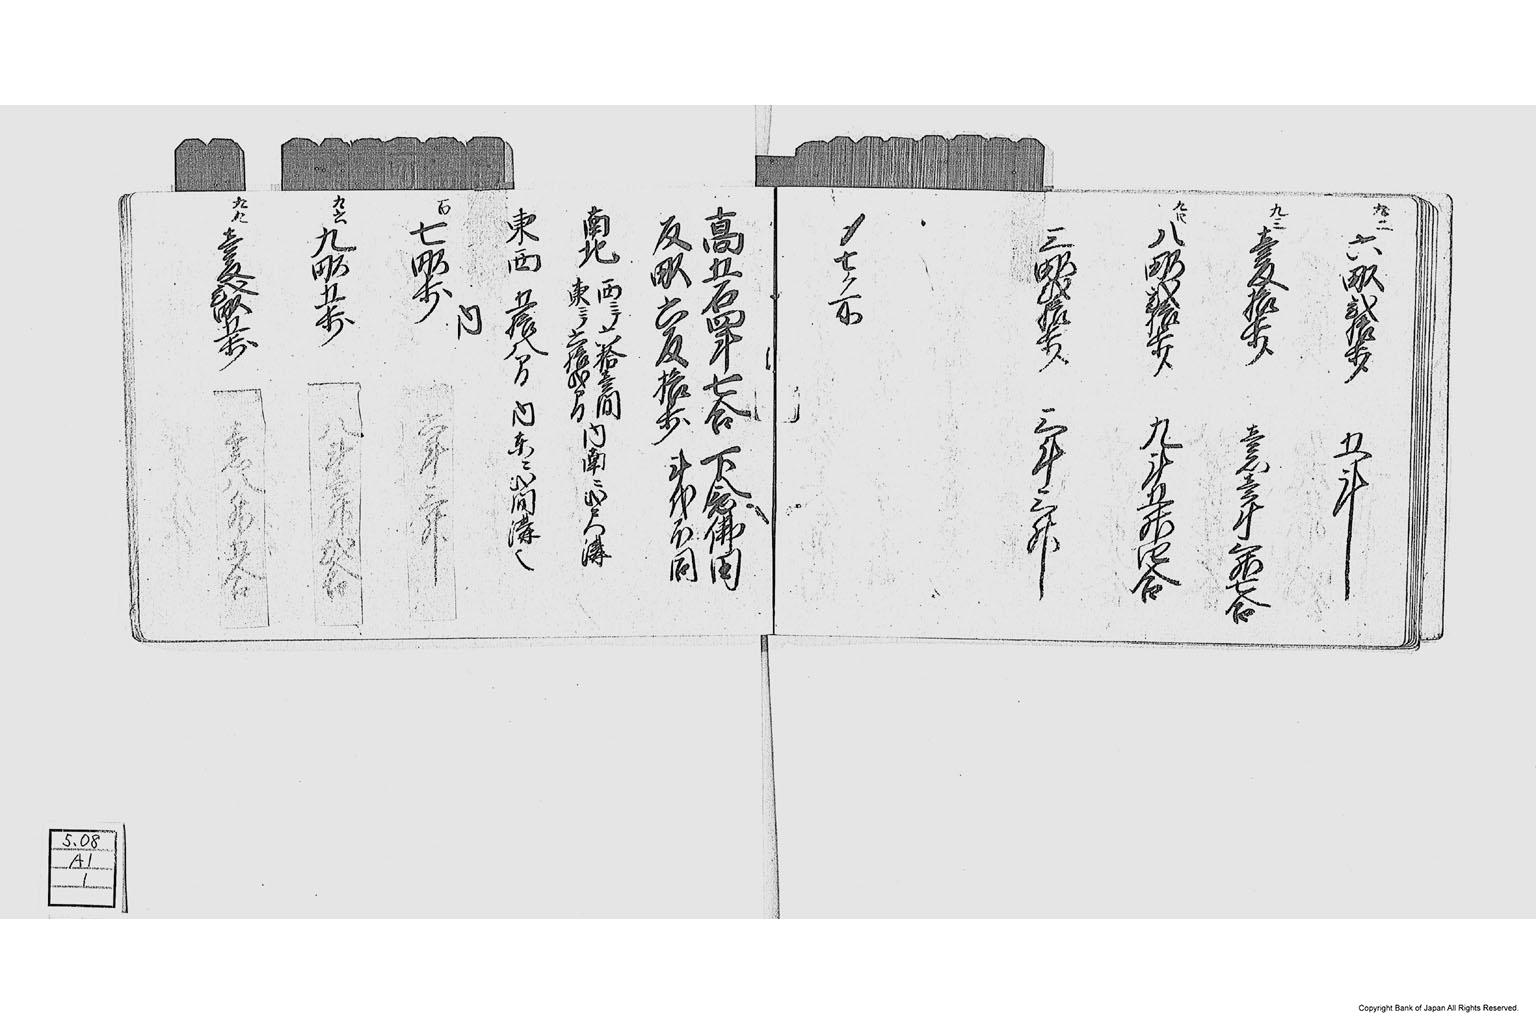 六畝弐拾歩
五斗
九三
壱反拾歩
壱石壱斗六升七合
八畝弐拾歩
九斗五升四合
三畝弐拾歩
三斗三升
〆七ヶ所
高五石四斗七合 下念佛田
反畝六反拾歩 斗代不同
南北
西ニ而六拾壱間 内南ニ弐尺溝
東ニ而六拾弐間
東西 五拾八間 内東ニ弐間溝
内
百
七畝歩
九六
九畝五歩
八斗 合
壱反 畝五歩
壱石八升五合
5.08
A1
1
Copyright Bank of Japan All Rights Reserved.